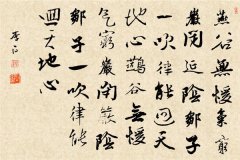 燕谷無暖氣窮
巖閉嚴陰鄒子
一吹律能迴天
地心燕谷無暖
氣窮巖閉嚴陰
鄒子一吹律能
迴天地心